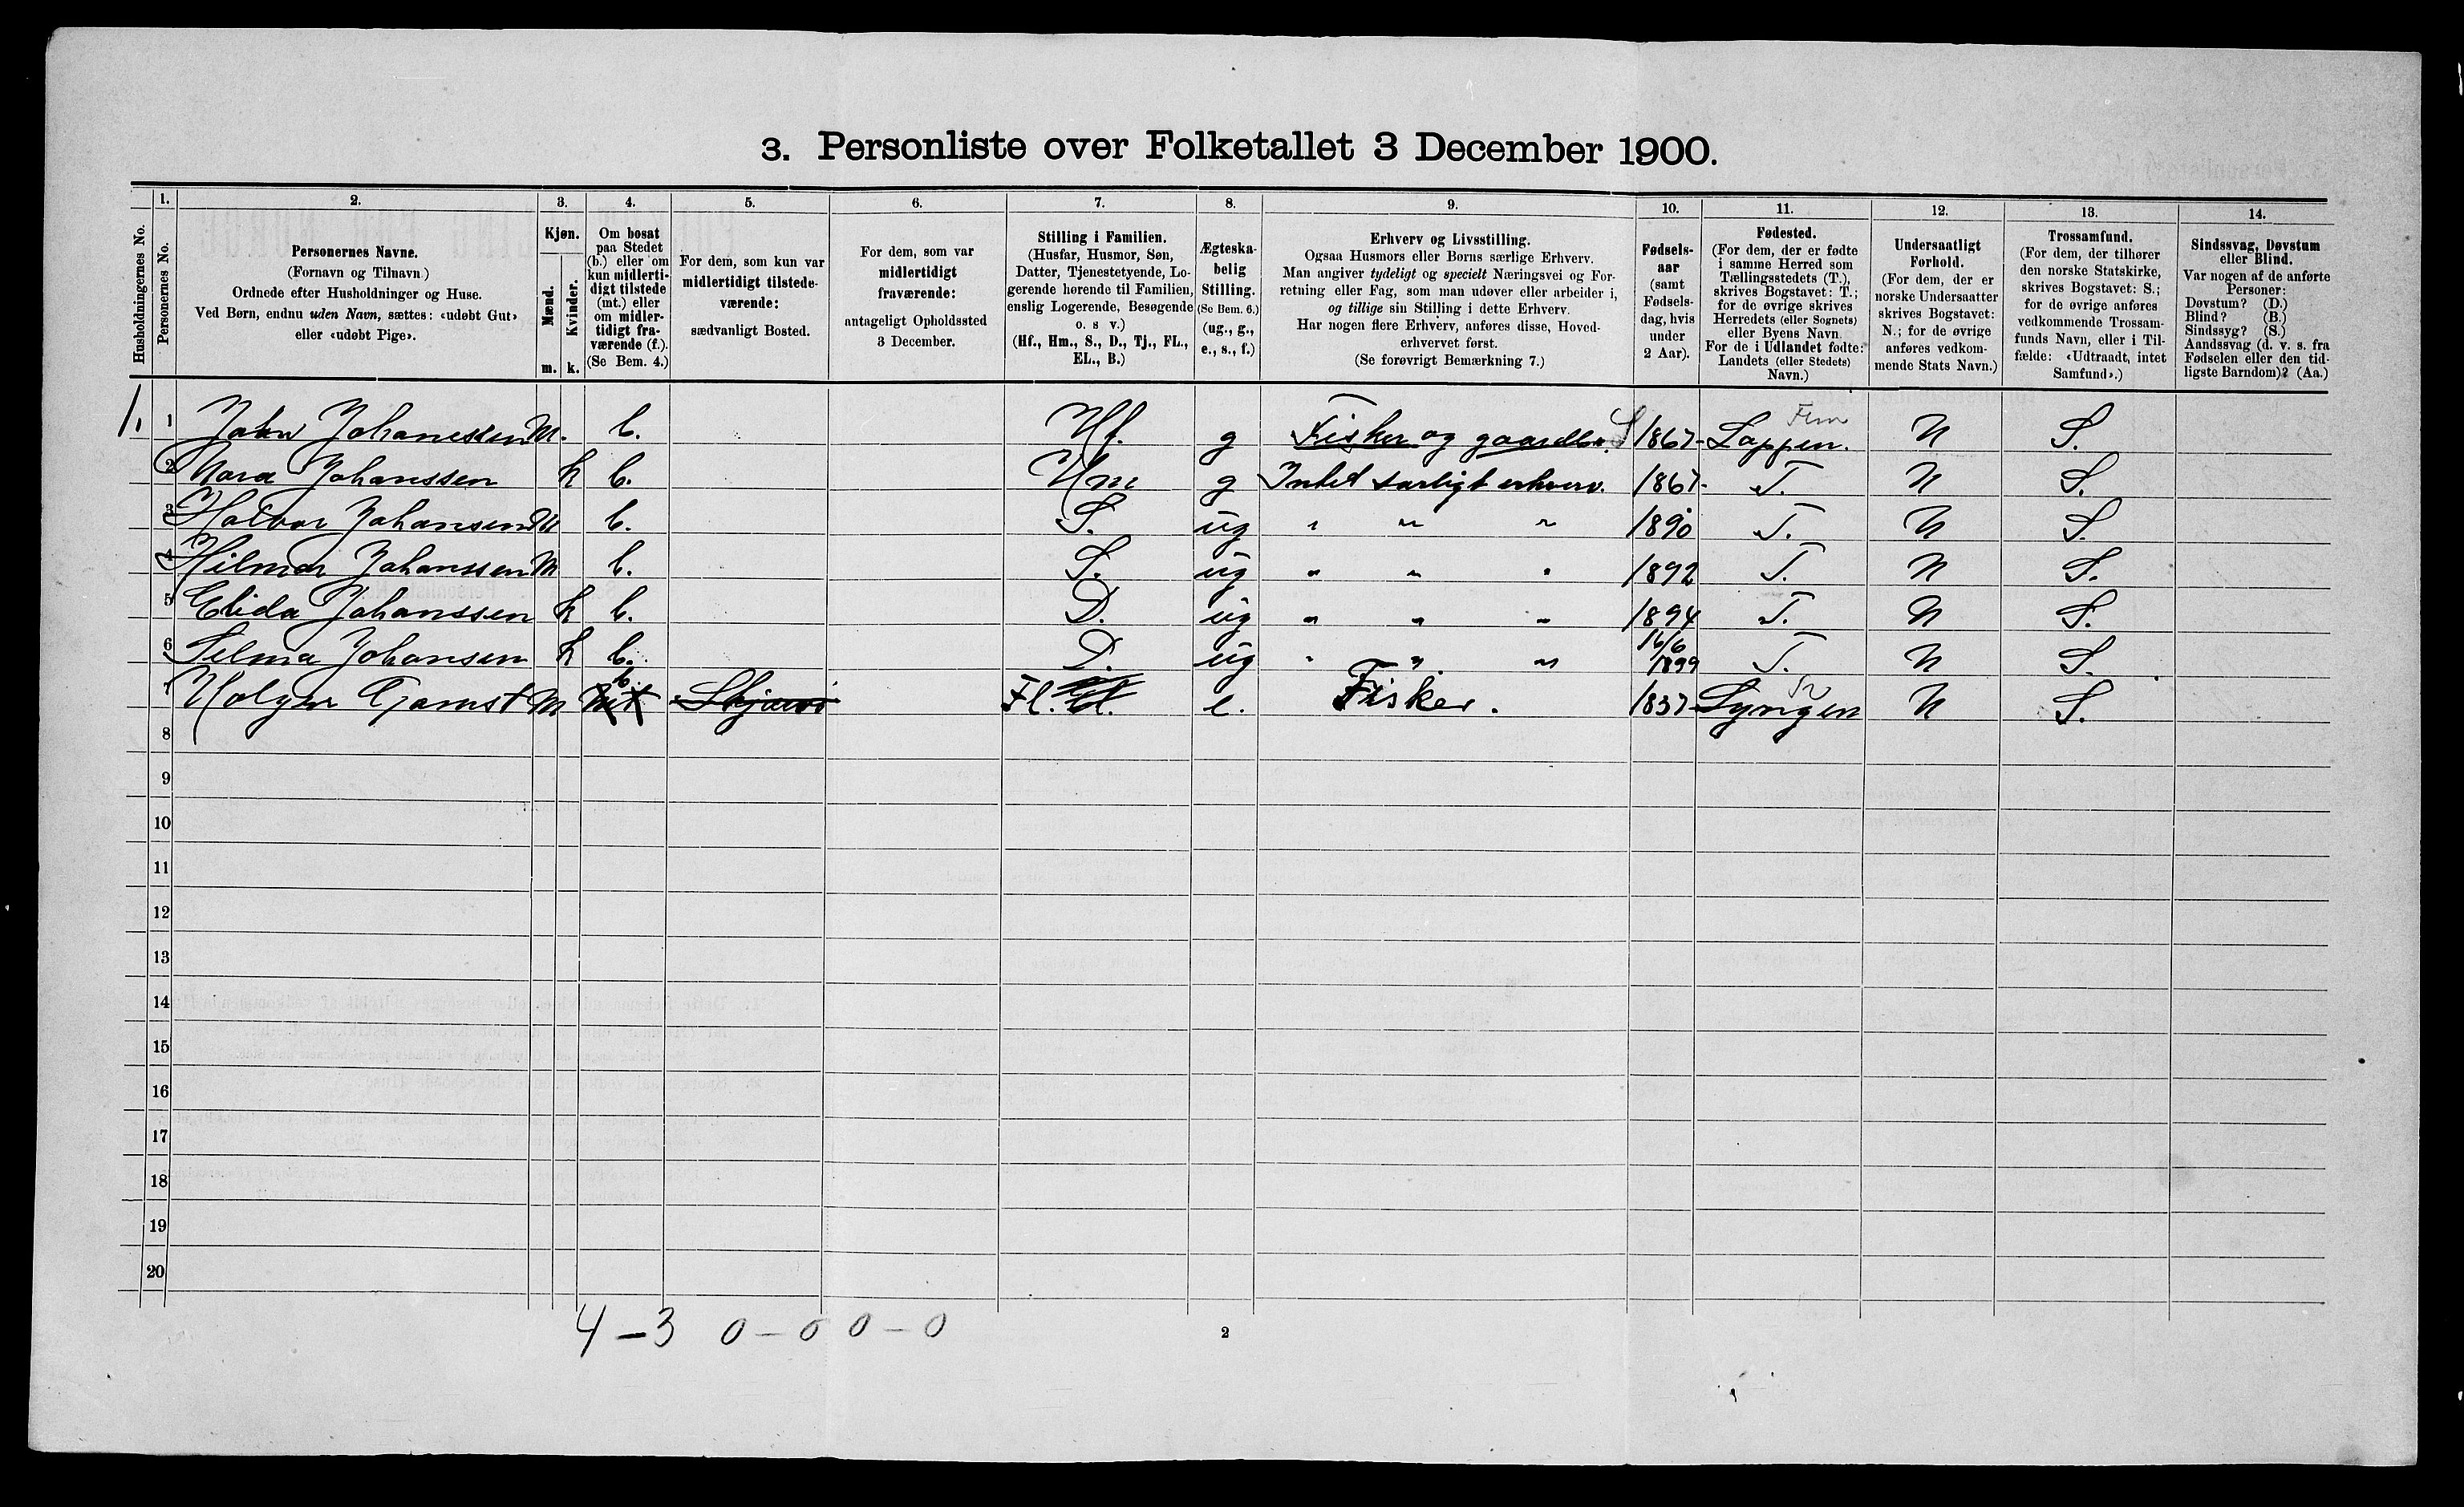 3. Personliste over Folketallet 3 December 1900.
Husholdningernes No.
1.
Personernes No.
2.
Personernes Navne.
(Fornavn og Tilnavn.)
Ordnede efter Husholdninger og Huse.
Ved Børn, endnu uden Navn, sættes: «udøbt Gut»
eller «udøbt Pige».
3.
Kjøn.
Mænd.
Kvinder.
m. k.
4.
Om bosat
paa Stedet
(b.) eller om
kun midlerti-
digt tilstede
(mt.) eller
om midler-
tidigt fra-
værende (f.).
(Se Bem. 4.)
5.
For dem, som kun var
midlertidigt tilstede-
værende:
sædvanligt Bosted.
6.
For dem, som var
midlertidigt
fraværende:
antageligt Opholdssted
3 December.
7.
Stilling i Familien.
(Husfar, Husmor, Søn,
Datter, Tjenestetyende, Lo-
gerende hørende til Familien,
enslig Logerende, Besøgende
o. s v.)
(Hf., Hm., S., D., Tj., FL.,
EL., B.)
8.
Ægteska-
belig
Stilling.
(Se Bem. 6.)
(ug., g.,
e., s., f.)
9.
Erhverv og Livsstilling.
Ogsaa Husmors eller Børns særlige Erhverv.
Man angiver tydeligt og specielt Næringsvei og For-
retning eller Fag, som man udøver eller arbeider i,
og tillige sin Stilling i dette Erhverv.
Har nogen flere Erhverv, anføres disse, Hoved-
erhvervet først.
(Se forøvrigt Bemærkning 7.)
10.
Fødsels-
aar
(samt
Fødsels-
dag, hvis
under
2 Aar).
11.
Fødested.
(For dem, der er fødte
i samme Herred som
Tællingsstedets (T.),
skrives Bogstavet: T.;
for de øvrige skrives
Herredets (eller Sognets)
eller Byens Navn.
For de i Udlandet fødte:
Landets (eller Stedets)
Navn.)
12.
Undersaatligt
Forhold.
(For dem, der er
norske Undersaatter
skrives Bogstavet:
N.; for de øvrige
anføres vedkom-
mende Stats Navn.)
13.
Trossamfund.
(For dem, der tilhører
den norske Statskirke,
skrives Bogstavet: S.;
for de øvrige anføres
vedkommende Trossam-
funds Navn, eller i Til-
fælde: «Udtraadt, intet
Samfund».)
14.
Sindssvag, Døvstum
eller Blind.
Var nogen af de anførte
Personer:
Døvstum? (D.)
Blind? (B.)
Sindssyg? (S.)
Aandssvag (d. v. s. fra
Fødselen eller den tid-
ligste Barndom)? (Aa.)
1. 1 John Johanssen M. b. Hf. g Fisker og gaardbr. S 1867 Loppen. Fin N S.
2 Nora Johanssen k b. Hm g Intet særligt erhverv. 1867 T. N S.
3 Halvor Johansen M b. S. ug " " " 1890 T. N S.
4 Hilmar Johanssen M b. S. ug " " " 1892 T. N S.
5 Elida Johanssen k b. D. ug " " " 1894 T. N S.
6 Selma Johansen k b. D. ug " " " 16/6 1899 T. N S.
7 Holger Gamst M mt b. Skjervø Fl. e. Fisker. 1837 Lyngen N S.
8
9
10
11
12
13
14
15
16
17
18
19
20
4 - 3 0 - 0 0 - 0
2